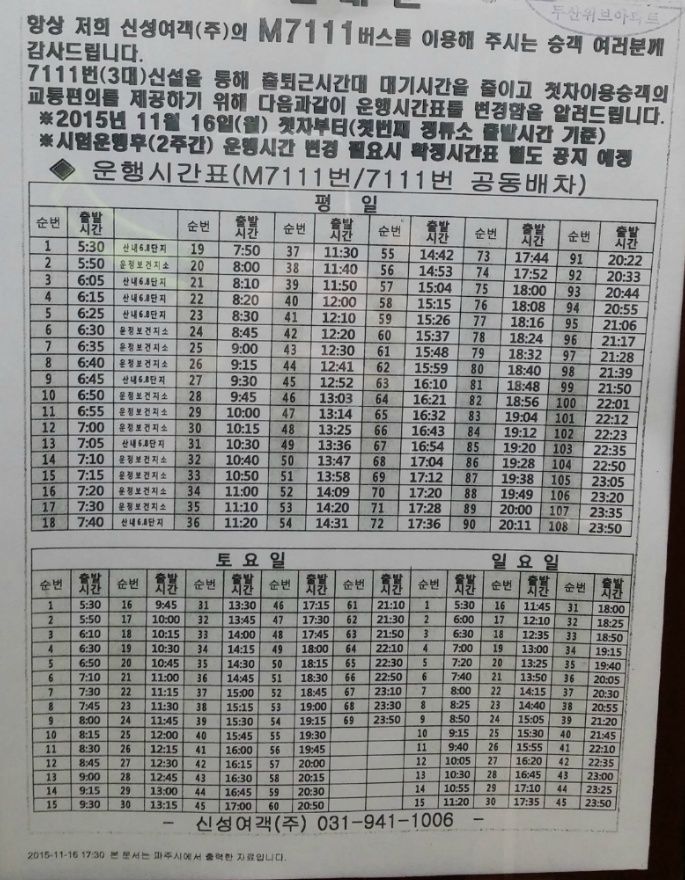 두산위브아파트
항상 저희 신성여객(주)의 M7111버스를 이용해 주시는 승객 여러분께
감사드립니다.
7111번(3대)신설을 통해 출퇴근시간대 대기시간을 줄이고 첫차이용승객의
교통편의를 제공하기 위해 다음과같이 운행시간표를 변경함을 알려드립니다.
※2015년 11월 16일(월) 첫차부터(첫번째 정류소 출발시간 기준)
※시험운행후(2주간) 운행시간 변경 필요시 확정시간표 별도 공지 예정
◈ 운행시간표(M7111번/7111번 공동배차)
평 일
순번 출발시간 순번 출발시간 순번 출발시간 순번 출발시간 순번 출발시간 순번 출발시간
1 5:30 산내6.8단지 19 7:50 37 11:30 55 14:42 73 17:44 91 20:22
2 5:50 운정보건지소 20 8:00 38 11:40 56 14:53 74 17:52 92 20:33
3 6:05 산내6.8단지 21 8:10 39 11:50 57 15:04 75 18:00 93 20:44
4 6:15 산내6.8단지 22 8:20 40 12:00 58 15:15 76 18:08 94 20:55
5 6:25 산내6.8단지 23 8:30 41 12:10 59 15:26 77 18:16 95 21:06
6 6:30 운정보건지소 24 8:45 42 12:20 60 15:37 78 18:24 96 21:17
7 6:35 운정보건지소 25 9:00 43 12:30 61 15:48 79 18:32 97 21:28
8 6:40 운정보건지소 26 9:15 44 12:41 62 15:59 80 18:40 98 21:39
9 6:45 산내6.8단지 27 9:30 45 12:52 63 16:10 81 18:48 99 21:50
10 6:50 운정보건지소 28 9:45 46 13:03 64 16:21 82 18:56 100 22:01
11 6:55 운정보건지소 29 10:00 47 13:14 65 16:32 83 19:04 101 22:12
12 7:00 운정보건지소 30 10:15 48 13:25 66 16:43 84 19:12 102 22:23
13 7:05 산내6.8단지 31 10:30 49 13:36 67 16:54 85 19:20 103 22:35
14 7:10 운정보건지소 32 10:40 50 13:47 68 17:04 86 19:28 104 22:50
15 7:15 운정보건지소 33 10:50 51 13:58 69 17:12 87 19:38 105 23:05
16 7:20 운정보건지소 34 11:00 52 14:09 70 17:20 88 19:49 106 23:20
17 7:30 운정보건지소 35 11:10 53 14:20 71 17:28 89 20:00 107 23:35
18 7:40 산내6.8단지 36 11:20 54 14:31 72 17:36 90 20:11 108 23:50
토 요 일 일 요 일
순번 출발시간 순번 출발시간 순번 출발시간 순번 출발시간 순번 출발시간 순번 출발시간 순번 출발시간 순번 출발시간
1 5:30 16 9:45 31 13:30 46 17:15 61 21:10 1 5:30 16 11:45 31 18:00
2 5:50 17 10:00 32 13:45 47 17:30 62 21:30 2 6:00 17 12:10 32 18:25
3 6:10 18 10:15 33 14:00 48 17:45 63 21:50 3 6:30 18 12:35 33 18:50
4 6:30 19 10:30 34 14:15 49 18:00 64 22:10 4 7:00 19 13:00 34 19:15
5 6:50 20 10:45 35 14:30 50 18:15 65 22:30 5 7:20 20 13:25 35 19:40
6 7:10 21 11:00 36 14:45 51 18:30 66 22:50 6 7:40 21 13:50 36 20:05
7 7:30 22 11:15 37 15:00 52 18:45 67 23:10 7 8:00 22 14:15 37 20:30
8 7:45 23 11:30 38 15:15 53 19:00 68 23:30 8 8:25 23 14:40 38 20:55
9 8:00 24 11:45 39 15:30 54 19:15 69 23:50 9 8:50 24 15:05 39 21:20
10 8:15 25 12:00 40 15:45 55 19:30 10 9:15 25 15:30 40 21:45
11 8:30 26 12:15 41 16:00 56 19:45 11 9:40 26 15:55 41 22:10
12 8:45 27 12:30 42 16:15 57 20:00 12 10:05 27 16:20 42 22:35
13 9:00 28 12:45 43 16:30 58 20:15 13 10:30 28 16:45 43 23:00
14 9:15 29 13:00 44 16:45 59 20:30 14 10:55 29 17:10 44 23:25
15 9:30 30 13:15 45 17:00 60 20:50 15 11:20 30 17:35 45 23:50
- 신성여객(주) 031-941-1006 -
2015-11-16 17:30 본 문서는 파주시에서 출력한 자료입니다.